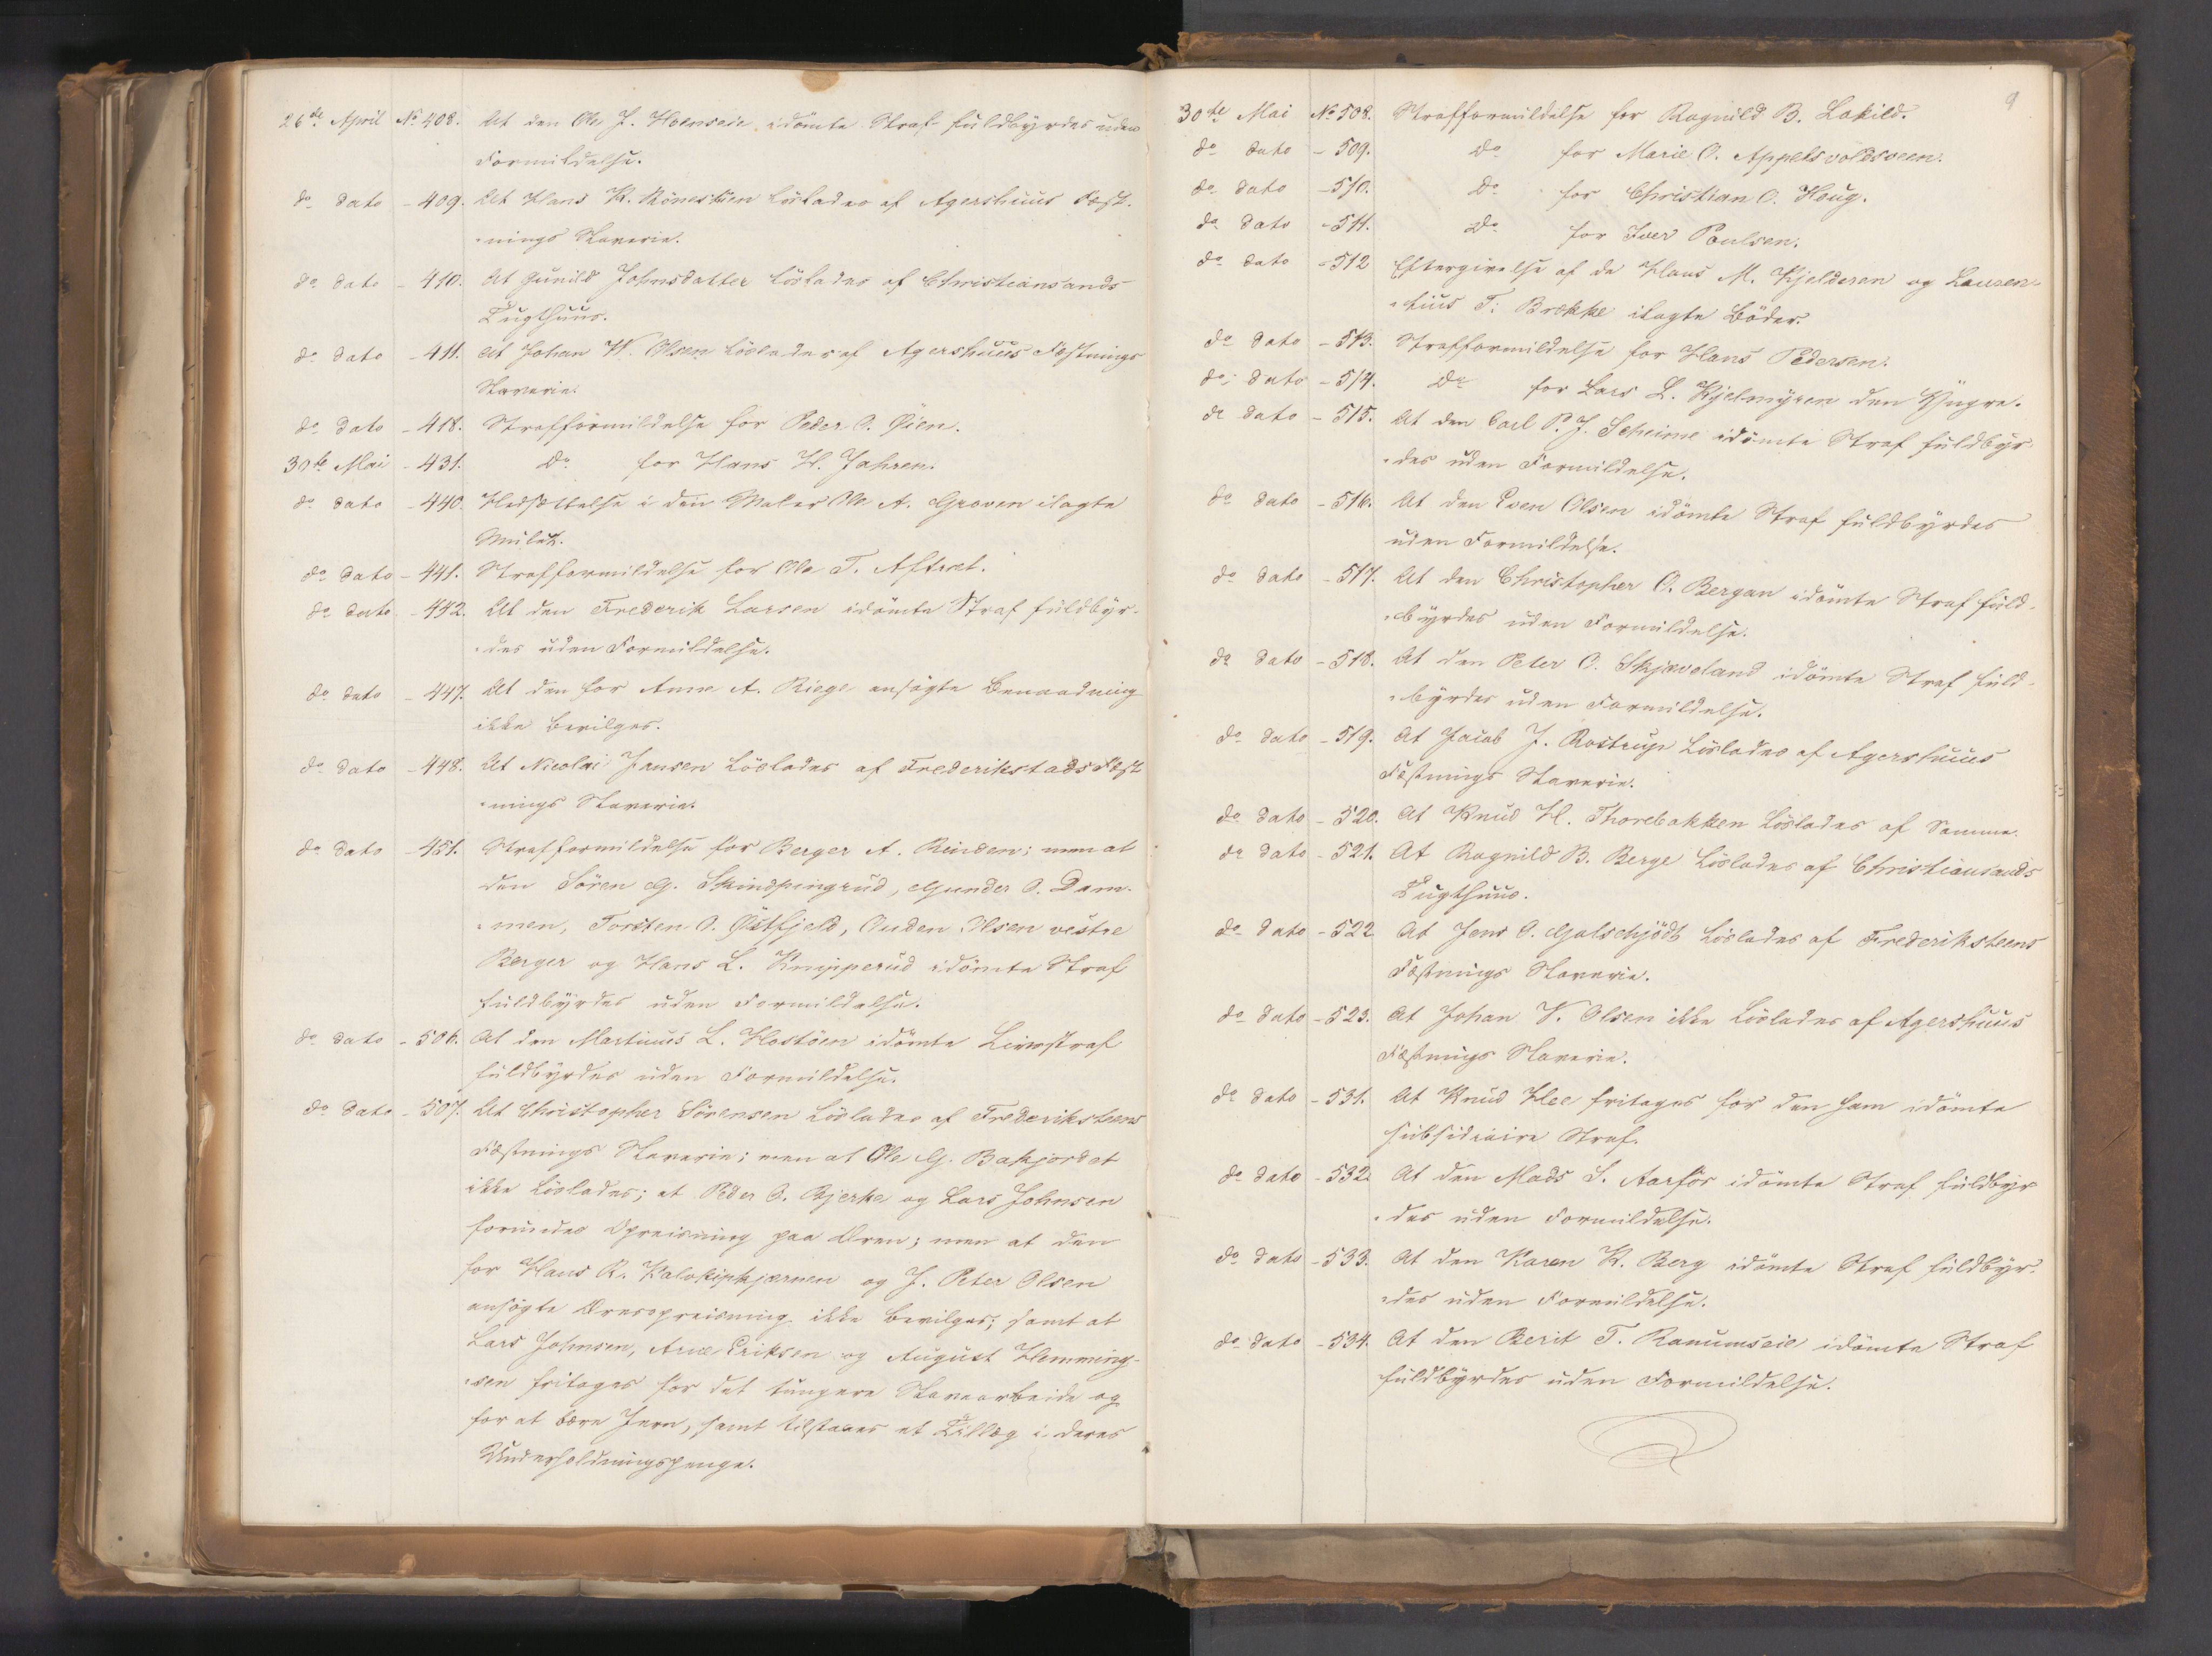 26de April No 408. At den Ole J. Hoenseie idömte Straf fuldbyrdes uden
Formildelse.
do dato - 409. At Hans K. Mönestuen löslades af Agershuus Fæst-
nings Slaverie.
do dato - 410. At Gunild Johnsdatter löslades af Christiansands
Tugthuus.
do dato - 411. At Johan W. Olsen löslades af Agershuus Fæstnings
Slaverie.
do dato - 418. Strafformildelse for Peder O. Øien.
30te Mai - 431. Do for Hans H. Jahren.
do dato - 440. Nedsættelse i den Maler Ole A. Groven ilagte
Mulct.
do dato - 441. Strafformildelse for Ole T. Aftret.
do dato - 442. At den Frederik Larsen idömte Straf fuldbyr-
des uden Formildelse.
do dato - 447. At den for Anne A. Riege ansögte Benaadning
ikke bevilges.
do dato - 448. At Nicolai Jansen löslades af Frederikstads Fæst
nings Slaverie.
do dato - 451. Strafformildelse for Berger A. Rinden; men at
den Sören G. Skindpingrud, Gunder O. Dam-
men, Torsten O. Østfjeld, Auden Olsen vestre
Berger og Hans L. Knipperud idömte Straf
fuldbyrdes uden Formildelse.
do dato - 506. At den Martinus L. Hostöen idömte Livsstraf
fuldbyrdes uden Formildelse.
do dato - 507. At Christopher Sörensen löslades af Frederiksteens
Fæstnings Slaverie; men at Ole G. Bakjordet
ikke löslades; at Peder O. Bjerke og Lars Johnsen
forundes Opreisning paa Æren; men at den
for Hans R. Kalvskipkjærnen og J. Peter Olsen
ansögte Æresopreisning ikke bevilges; samt at
Lars Johnsen, Arne Eriksen og August Hemming-
sen fritages for det tungere Slavearbeide og
for at bære Jern, samt tilstaaes et Tillæg i deres
Underholdningspenge.
9
30te Mai No 508. Strafformildelse for Ragnild B. Lokild.
do dato - 509. Do for Marie O. Appelsvoldsveen.
do dato - 510. Do for Christian O. Houg.
do dato - 511. Do for Iver Poulsen.
do dato - 512 Eftergivelse af de Hans M. Kjelderen og Lauren-
tius T. Brække ilagte Böder.
do dato - 513. Strafformildelse for Hans Pedersen.
do dato - 514. Do for Lars L. Kjelmyren den Yngre.
do dato - 515. At den Carl P. J. Scheime idömte Straf fuldbyr-
des uden Formildelse.
do dato - 516. At den Even Olsen idömte Straf fuldbyrdes
uden Formildelse.
do dato - 517. At den Christopher O. Bergan idömte Straf fuld-
byrdes uden Formildelse.
do dato - 518. At den Peter O. Skjæveland idömte Straf fuld-
byrdes uden Formildelse.
do dato - 519. At Jacob J. Rostrup löslades af Agershuus
Fæstnings Slaverie.
do dato - 520. At Knud H. Thorebakken löslades af Samme.
do dato - 521. At Ragnild B. Berge löslades af Christiansands
Tugthuus.
do dato - 522 At Jens O. Galschjödt löslades af Frederiksteens
Fæstnings Slaverie.
do dato - 523. At Johan V. Olsen ikke löslades af Agershuus
Fæstnings Slaverie.
do dato - 531. At Knud Hee fritages for den ham idömte
subsidiaire Straf.
do dato - 532. At den Mads S. Aarfor idömte Straf fuldbyr
des uden Formildelse.
do dato - 533. At den Karen K. Berg idömte Straf fuldbyr-
des uden Formildelse.
do dato - 534. At den Berit T. Ranumseie idömte Straf
fuldbyrdes uden Formildelse.